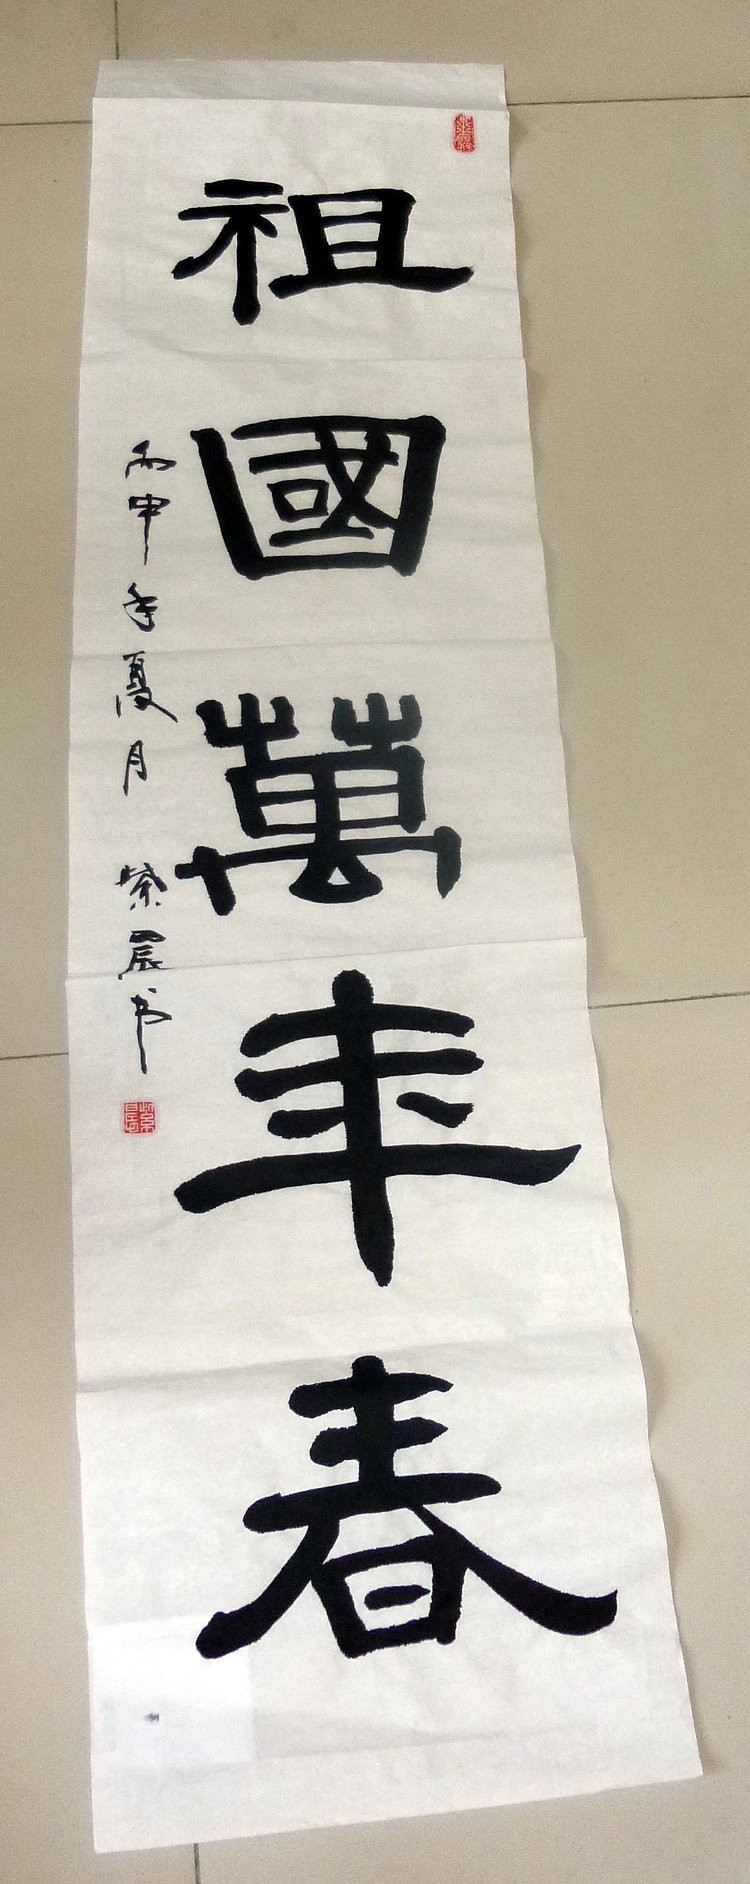 祖國萬年春
丙申年夏月 紫晨书